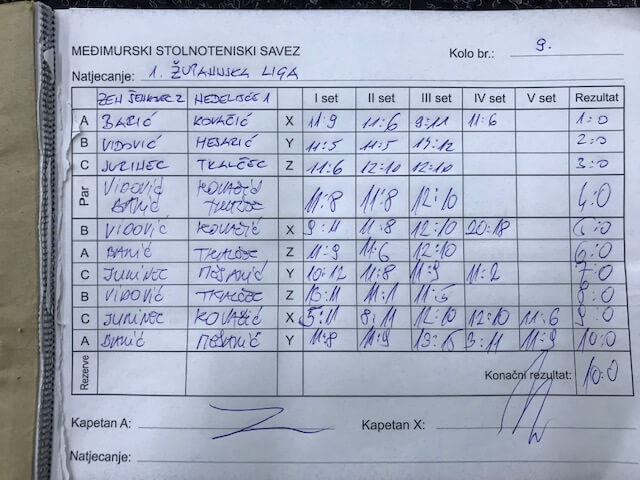 MEĐIMURSKI STOLNOTENISKI SAVEZ
Kolo br.: 9.
Natjecanje: 1. ŽUPANIJSKA LIGA
ZEN ŠENKOVEC 2 NEDELIŠĆE 1 I set II set III set IV set V set Rezultat
A BANIĆ KOVAČIĆ X 11:9 11:6 9:11 11:6 1:0
B VIDOVIĆ MESARIĆ Y 11:5 11:5 14:12 2:0
C JURINEC TKALČEC Z 11:6 12:10 12:10 3:0
Par VIDOVIĆ KOVAČIĆ 11:8 11:8 12:10 4:0
BANIĆ TKALČEC
B VIDOVIĆ KOVAČIĆ X 9:11 11:8 12:10 20:18 5:0
A BANIĆ TKALČEC Z 11:9 11:6 12:10 6:0
C JURINEC MESARIĆ Y 10:12 11:8 11:9 11:2 7:0
B VIDOVIĆ TKALČEC Z 13:11 11:1 11:5 8:0
C JURINEC KOVAČIĆ X 5:11 8:11 12:10 12:10 11:6 9:0
A BANIĆ MESARIĆ Y 11:8 11:9 13:15 3:11 11:9 10:0
Rezerve Konačni rezultat: 10:0
Kapetan A: Kapetan X:
Natjecanje: